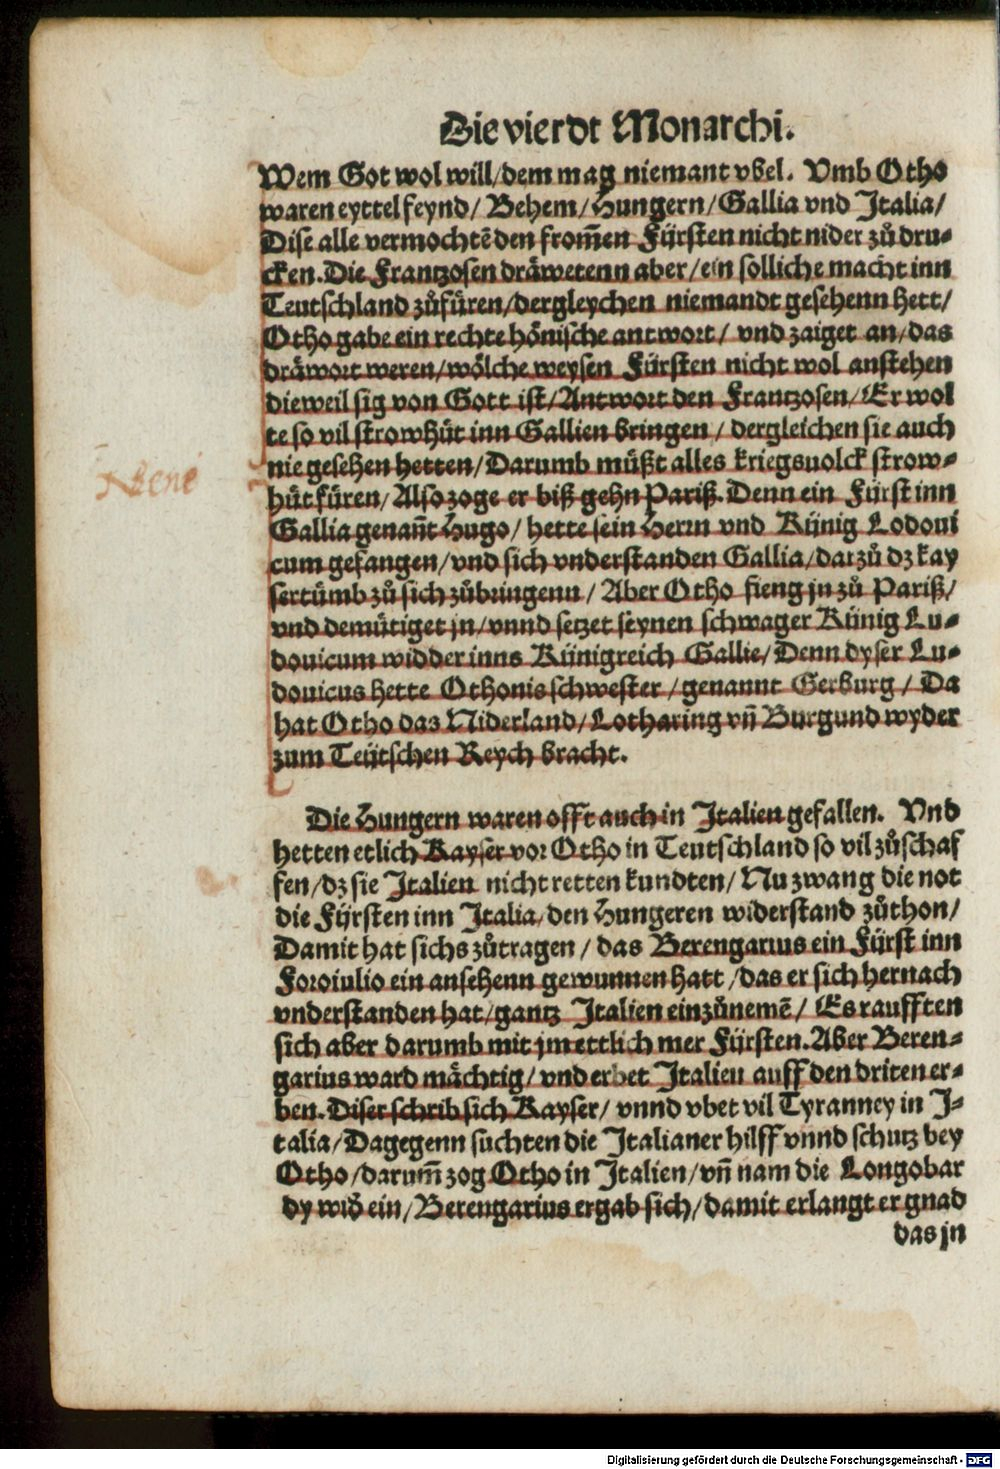 Die vierdt Monarchi.
Wem Got wol will/dem mag niemant vbel. Vmb Otho
waren eyttel feynd/ Behem/ Hungern/ Gallia vnd Italia/
Dise alle vermochtẽ den from̃en Fürsten nicht nider zů dru-
cken. Die Frantzosen dräwetenn aber/ein solliche macht inn
Teutschland zůfüren/dergleychen niemandt gesehenn hett/
Otho gabe ein rechte hönische antwort/ vnd zaiget an/das
dräwort weren/wölche weysen Fürsten nicht wol anstehen
dieweil sig von Gott ist/Antwort den Frantzosen/Er wol
te so vil strowhüt inn Gallien bringen/ dergleichen sie auch
nie gesehen hetten/Darumb müßt alles kriegsuolck strow-
hüt füren/Also zoge er biß gehn Pariß. Denn ein Fürst inn
Gallia genañt Hugo/ hette sein Herrn vnd Künig Lodoui
cum gefangen/vnd sich vnderstanden Gallia/darzů dz kay
serthümb zů sich zůbringenn/ Aber Otho fieng jn zů Pariß/
vnd demütiget jn/vnnd setzet seynen schwager Künig Lu-
douicum widder inns Künigreich Gallie/Denn dyser Lu-
douicus hette Othonis schwester/genannt Gerburg/ Da
hat Otho das Niderland/Lotharing vñ Burgund wyder
zum Teütschen Reych bracht.
Die Hungern waren offt auch in Italien gefallen. Vnd
hetten etlich Kayser vor Otho in Teutschland so vil zůschaf
fen/dz sie Italien nicht retten kundten/Nu zwang die not
die Fürsten inn Italia/den Hungeren widerstand zůthon/
Damit hat sichs zůtragen/ das Berengarius ein Fürst inn
Foroiulio ein ansehenn gewunnen hatt/das er sich hernach
vnderstanden hat/gantz Italien einzůnemẽ/ Es raufften
sich aber darumb mit jm ettlich mer Fürsten. Aber Beren-
garius ward mächtig/vnd erbet Italien auff den driten er-
ben. Diser schrib sich Kayser/ vnnd vbet vil Tyranney in J-
talia/Dagegenn suchten die Italianer hilff vnnd schutz bey
Otho/darum̃ zog Otho in Italien/vñ nam die Longobar
dy wiď ein/Berengarius ergab sich/damit erlangt er gnad
das jn
Digitalisierung gefördert durch die Deutsche Forschungsgemeinschaft - DFG